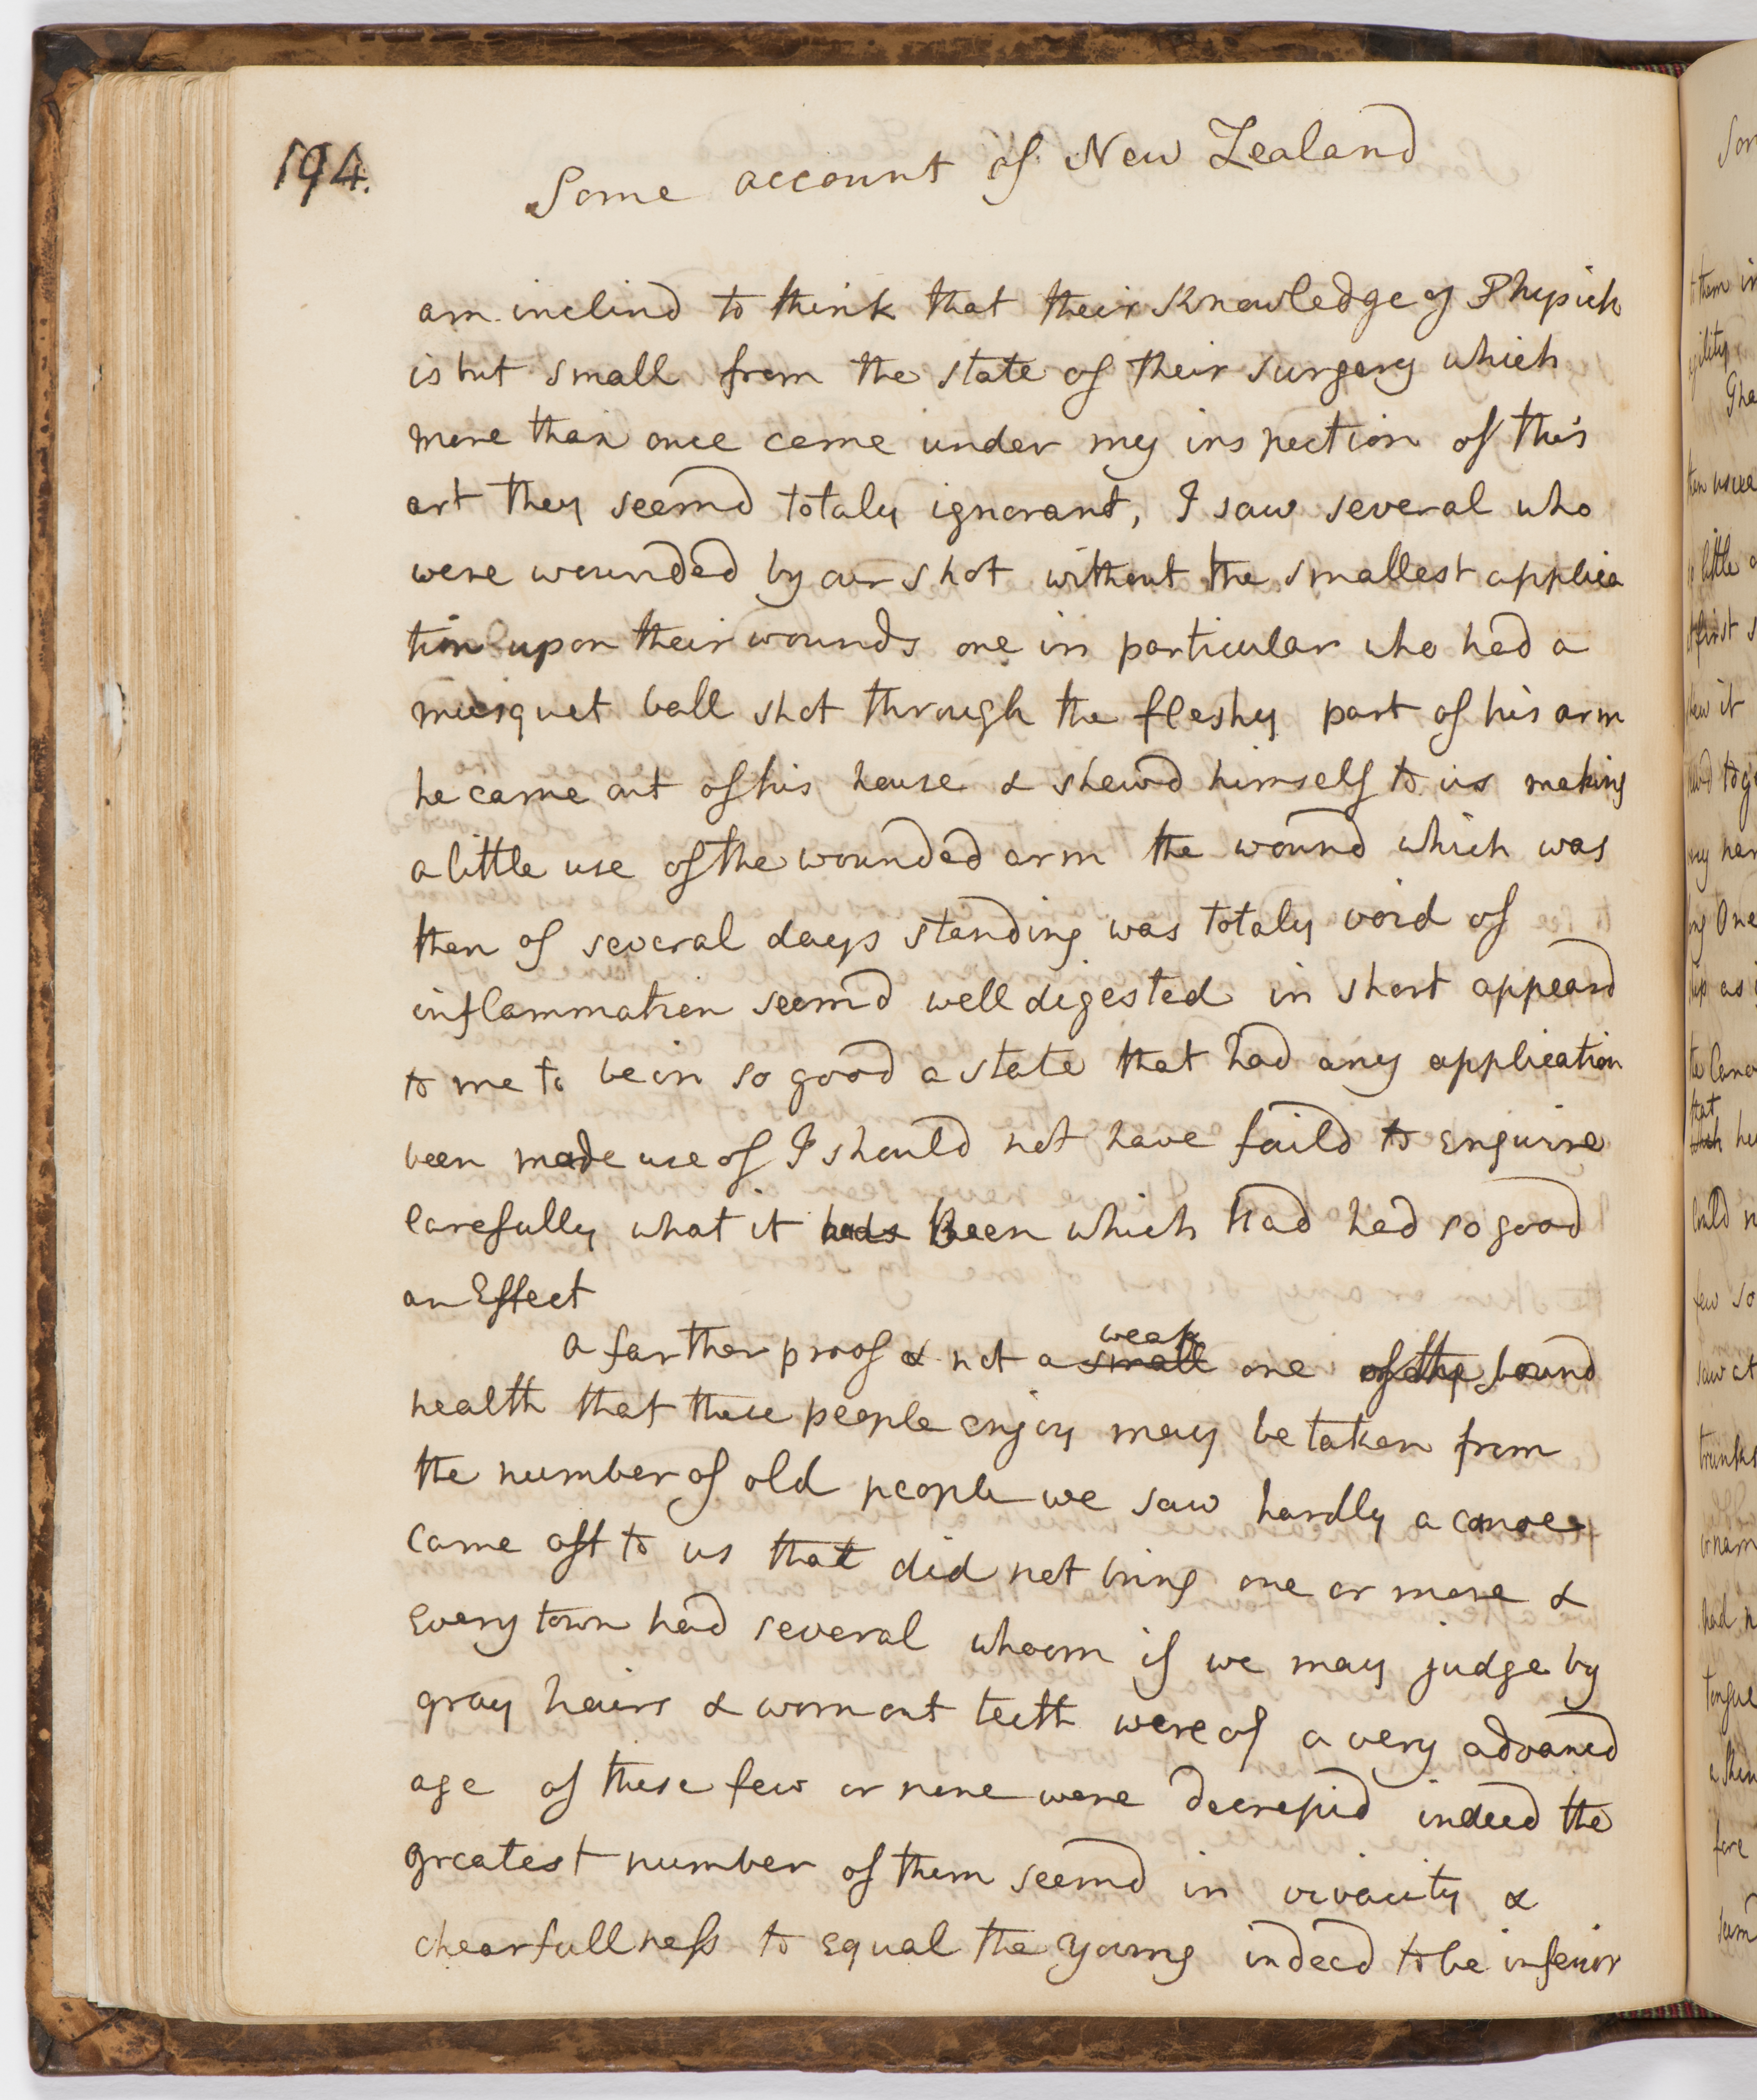 194.
Some account of New Zealand
am inclind to think that their Knowledge of Physick
is but small from the state of their surgery which
more than once came under my inspection of this
art they seemd totaly ignorant, I saw several who
were wounded by our shot without the smallest applica
tion upon their wounds one in particular who had a
musquet ball shot through the fleshy part of his arm
he came out of his house & shewd himself to us making
a little use of the wounded arm the wound which was
then of several days standing was totaly void of
inflammation seemd well digested in short appeard
to me to be in so good a state that had any application
been made use of I should not have faild to enquire
carefully what it had Been which had had so good
an Effect
a farther proof & not a small weak one of the sound
health that these people enjoy may be taken from
the number of old people we saw hardly a canoe
came off to us that did not bring one or more &
every town had several whoom if we may judge by
gray hairs & worn out teeth were of a very advancd
age of these few or none were decrepid indeed the
greatest number of them seemd in vivacity &
chearfullness to equal the young indeed to be inferior